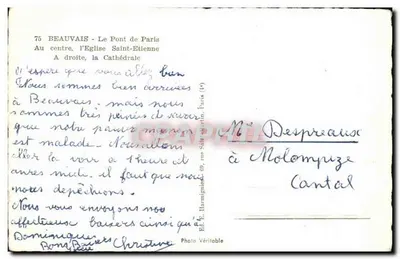 75 BEAUVAIS - Le Pont de Paris
Au centre, l'Eglise Saint-Etienne
A droite, la Cathédrale
J'espère que vous allez bien
Nous sommes bien arrivées
à Beauvais, mais nous
sommes très peinés de savoir
que notre
est malade. Nous
aller la voir à l'heure d'
midi. il faut que nous
nous dépêchions.
Nous vous envoyons nos
affectueux baisers ainsi qu'à
Dominique
Bons Baisers Christine
Melle Despreaux
à Molompize
Cantal
Photo Véritable